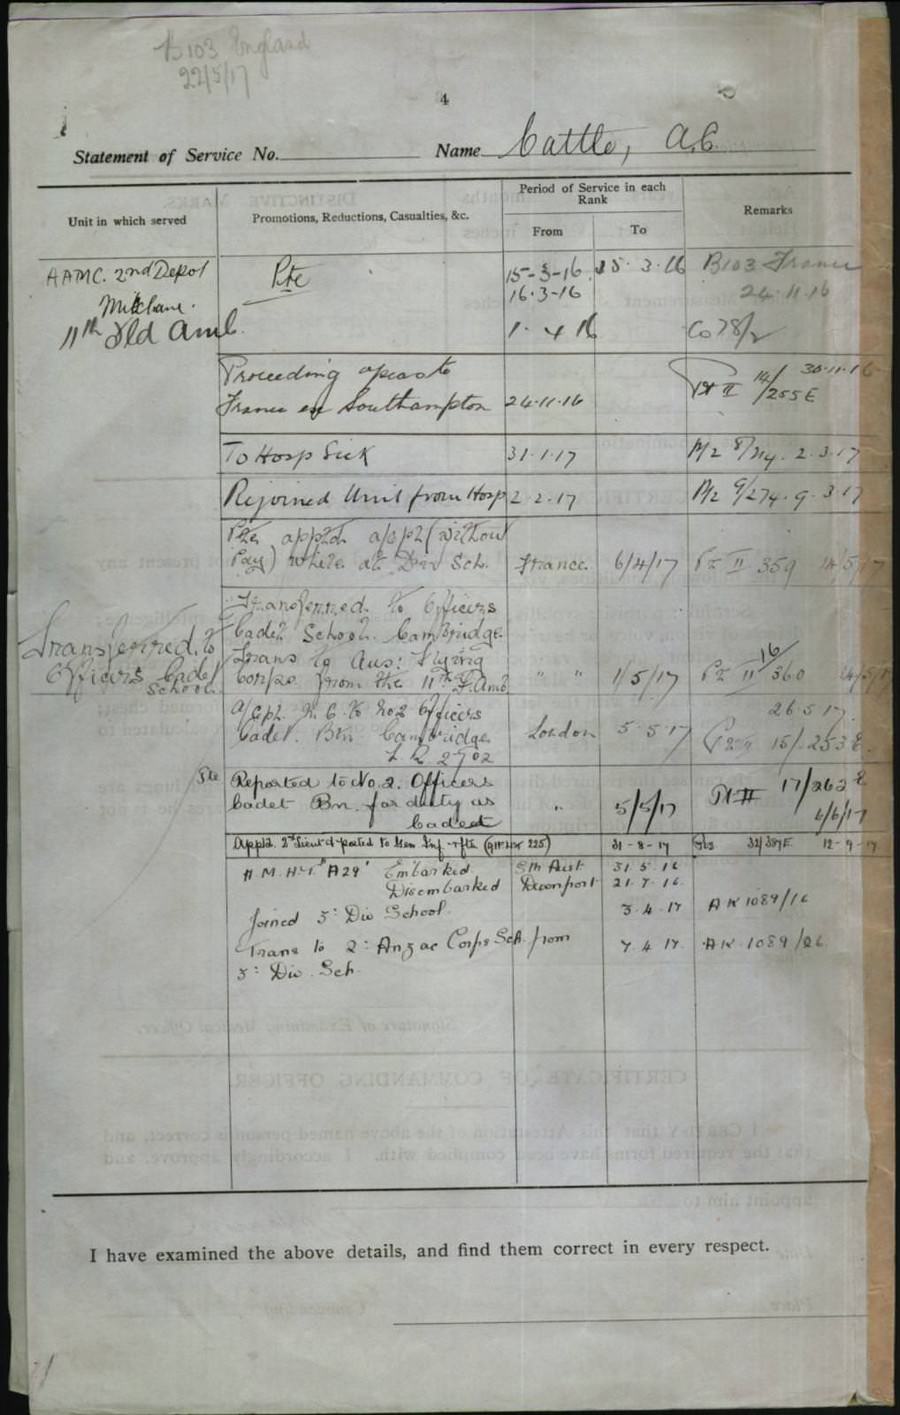 B103 England
22/5/17
4
Statement of Service No. Name Cattle, A.C.
Unit in which served
Promotions, Reductions, Casualties, &c.
Period of Service in each Rank
From
To
Remarks
AAMC. 2nd Depot
Mitcham.
11th Fld Amb.
Pte
15-3-16 15.3.16 B103 France
16.3-16 24.11.16
1. 4 16 Co 78/2
Proceeding o/seas to
France ex Southampton 24.11.16 Pt II 14/255E 30.11.16
To Hosp Sick 31.1.17 2.3.17
Rejoined Unit from Hosp 2.2.17 9/274. 9.3.17
Pte appt'd a/cpl (without
Pay) while at Div Sch. France. 6/4/17 Pt II 359 14/5/17
Transferred to
Officers Cadet
School.
Transferred to Officers
Cadet School Cambridge.
Trans to Aus: Flying
Corps. from the 11th F.Amb. " " 1/5/17 Pt II 16/360
A/Cpl to No 2 Officers
Cadet. Bn. Cambridge London 5.5.17 Pt II 15/253E 26.5.17
L R 2902
Pte
Reported to No. 2. Officers
Cadet Bn. for duty as
Cadet " 5/5/17 Pt II 17/262E
6/6/17
Appt'd. 2nd Lieut & posted to Gen Inf. rfts 31-8-17 32/387E 12-9-17
H.M.A.T. "A29" Embarked Sth Aust. 31.5.16
Disembarked Devonport 21.7.16
Joined 3: Div School. 3.4.17 AK 1089/16
Trans to 2: Anzac Corps Sch. from 7.4.17. AK 1089/26
3: Div. Sch.
I have examined the above details, and find them correct in every respect.